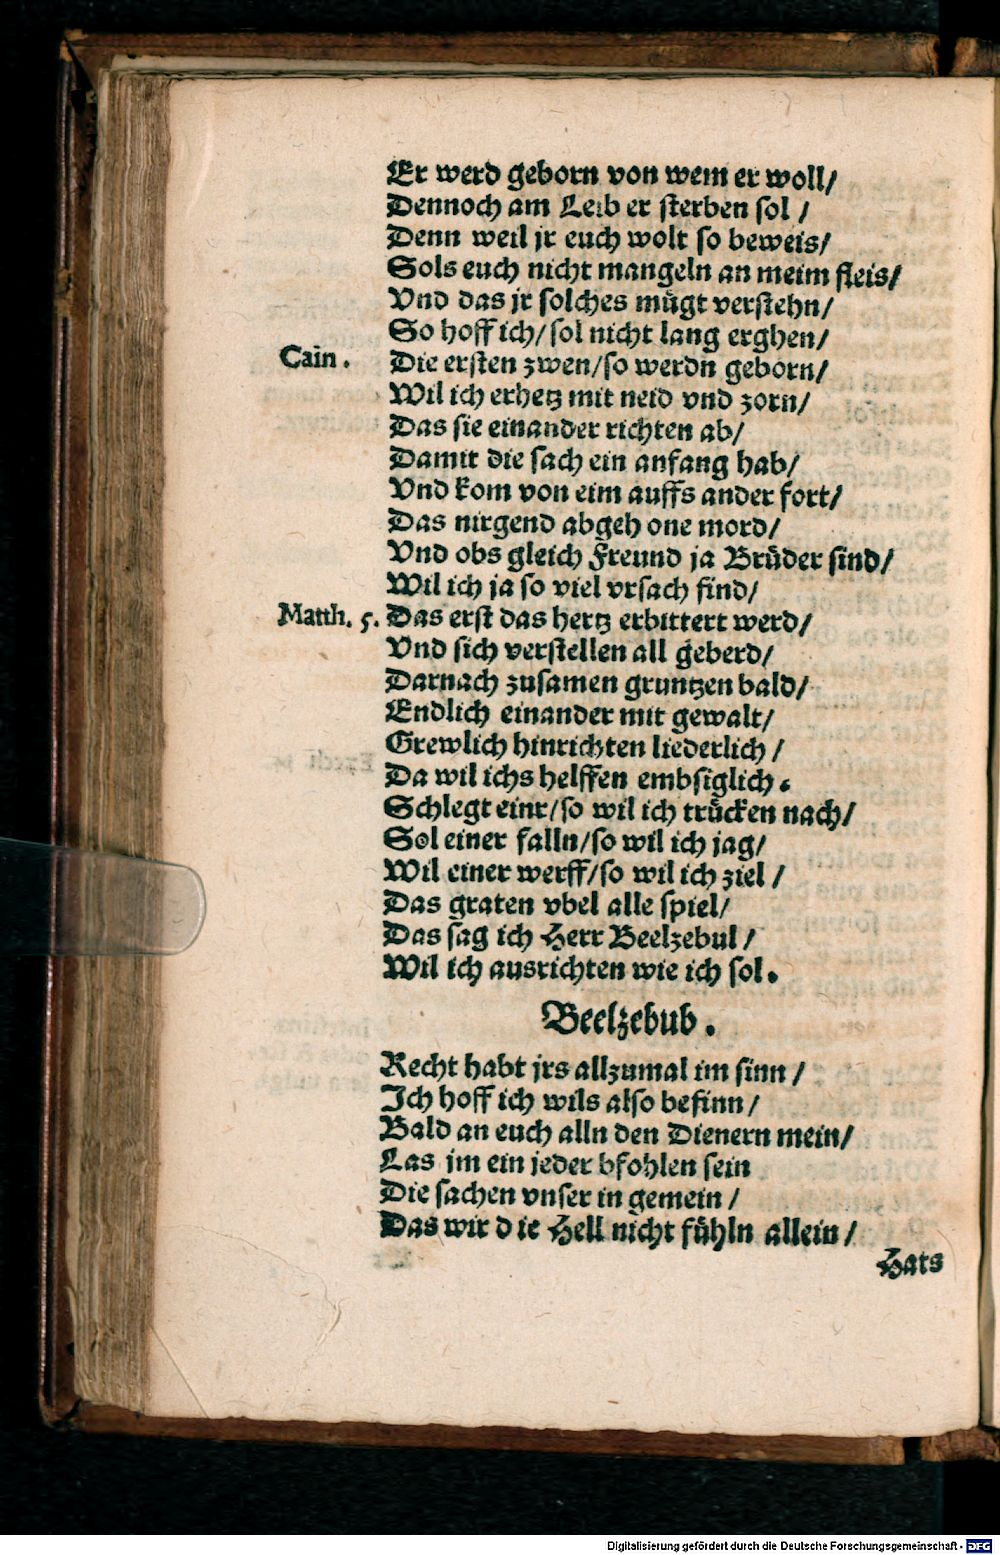 Er werd geborn von wem er woll/
Dennoch am Leib er sterben sol /
Denn weil jr euch wolt so beweis/
Sols euch nicht mangeln an meim fleis/
Vnd das jr solches mügt verstehn/
So hoff ich/sol nicht lang erghen/
Cain. Die ersten zwen/so werdn geborn/
Wil ich erhetz mit neid vnd zorn/
Das sie einander richten ab/
Damit die sach ein anfang hab/
Vnd kom von eim auffs ander fort/
Das nirgend abgeh one mord/
Vnd obs gleich Freund ja Brüder sind/
Wil ich ja so viel vrsach find/
Matth. 5. Das erst das hertz erbittert werd/
Vnd sich verstellen all geberd/
Darnach zusamen gruntzen bald/
Endlich einander mit gewalt/
Grewlich hinrichten liederlich /
Da wil ichs helffen embsiglich.
Schlegt einr/so wil ich trücken nach/
Sol einer falln/so wil ich jag/
Wil einer werff/so wil ich ziel /
Das graten vbel alle spiel/
Das sag ich Herr Beelzebul /
Wil ich ausrichten wie ich sol.
Beelzebub.
Recht habt jrs allzumal im sinn /
Ich hoff ich wils also befinn/
Bald an euch alln den Dienern mein/
Las jm ein jeder bfohlen sein
Die sachen vnser in gemein /
Das wir die Hell nicht fühln allein /
Hats
Digitalisierung gefördert durch die Deutsche Forschungsgemeinschaft - DFG